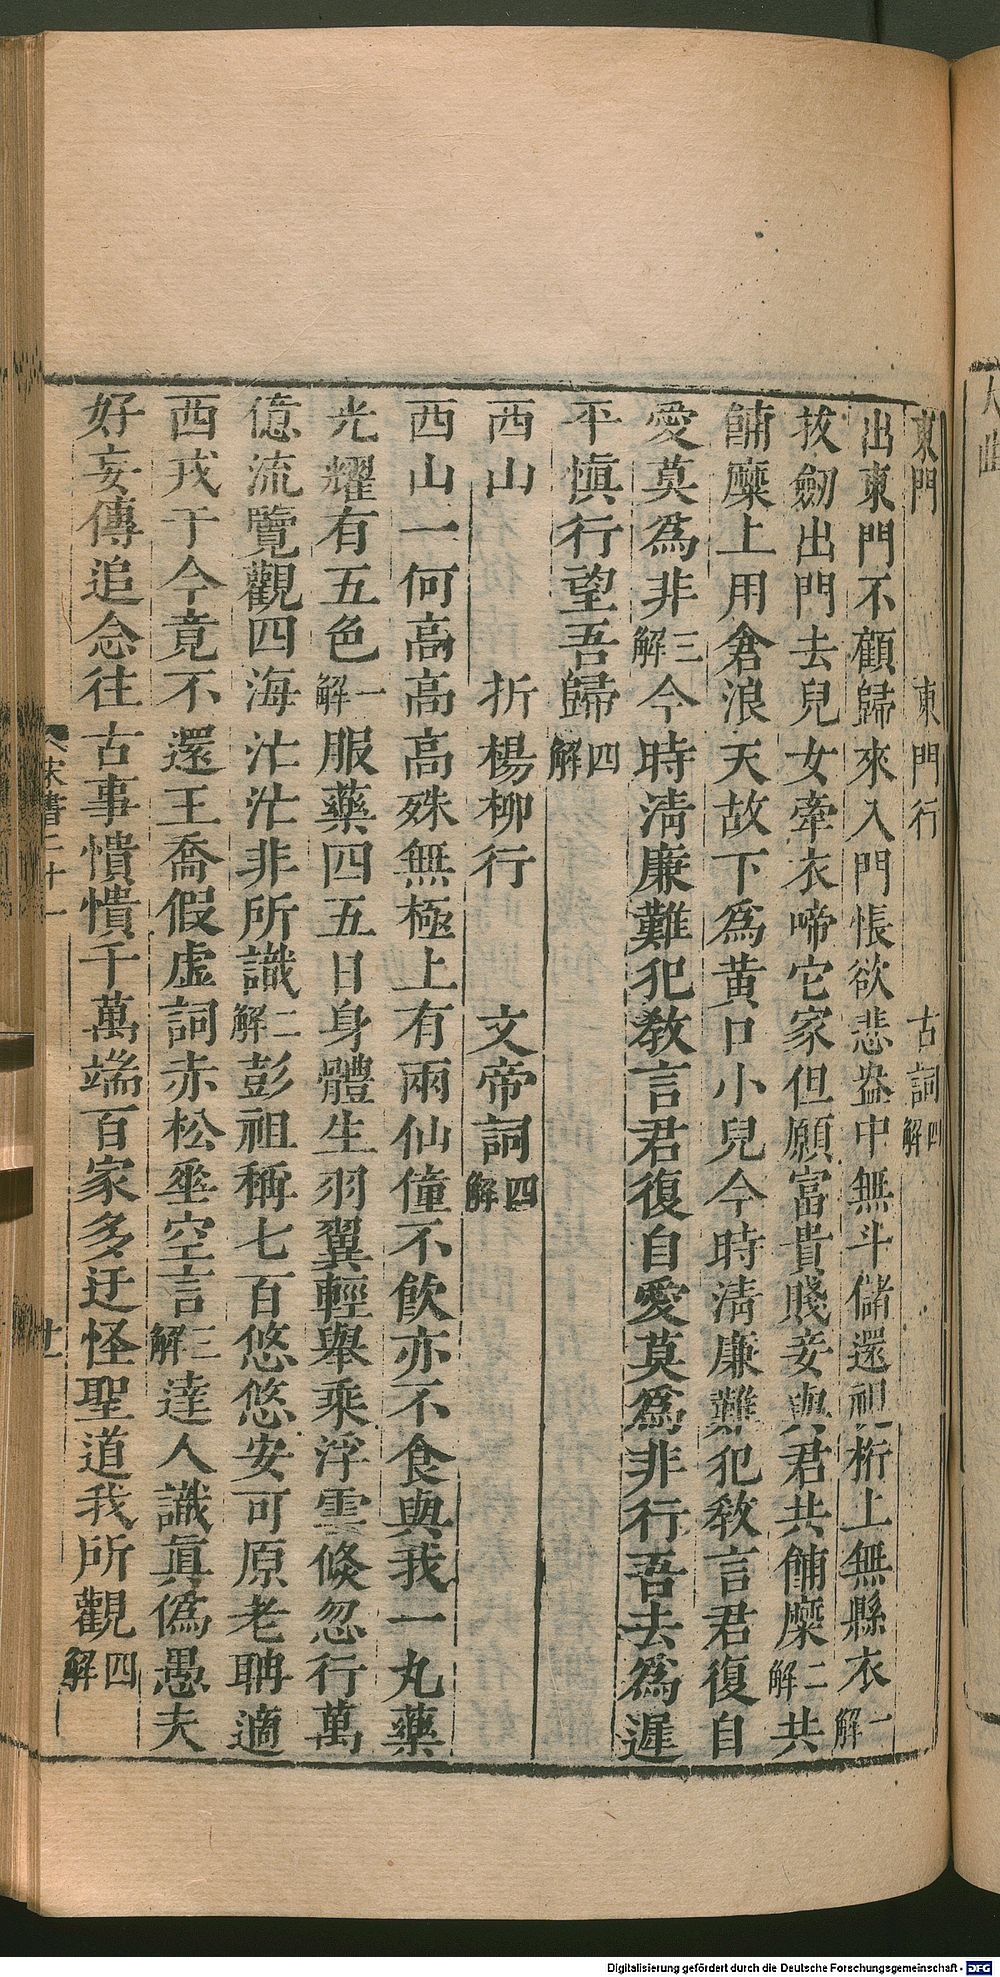 東門　東門行　古詞四解
出東門不顧歸來入門悵欲悲盎中無斗儲還視桁上無縣衣一解
拔劒出門去兒女牽衣啼它家但願富貴賤妾與君共餔糜二解共
餔糜上用倉浪天故下爲黃口小兒今時淸廉難犯敎言君復自
愛莫爲非三解今時淸廉難犯敎言君復自愛莫爲非行吾去爲遲
平愼行望吾歸四解
西山　折楊柳行　文帝詞四解
西山一何高高高殊無極上有兩仙僮不飮亦不食與我一丸藥
光耀有五色一解服藥四五日身體生羽翼輕舉乘浮雲倐忽行萬
億流覽觀四海汒汒非所識二解彭祖稱七百悠悠安可原老聃適
西戎于今竟不還王喬假虛詞赤松垂空言三解達人識眞僞愚夫
好妄傳追念往古事憒憒千萬端百家多迂怪聖道我所觀四解
宋書二十一
廿一
大曲
Digitalisierung gefördert durch die Deutsche Forschungsgemeinschaft - DFG